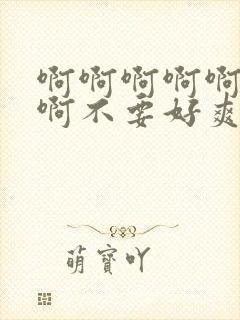 啊啊啊啊啊
啊不要好爽
萌寳吖